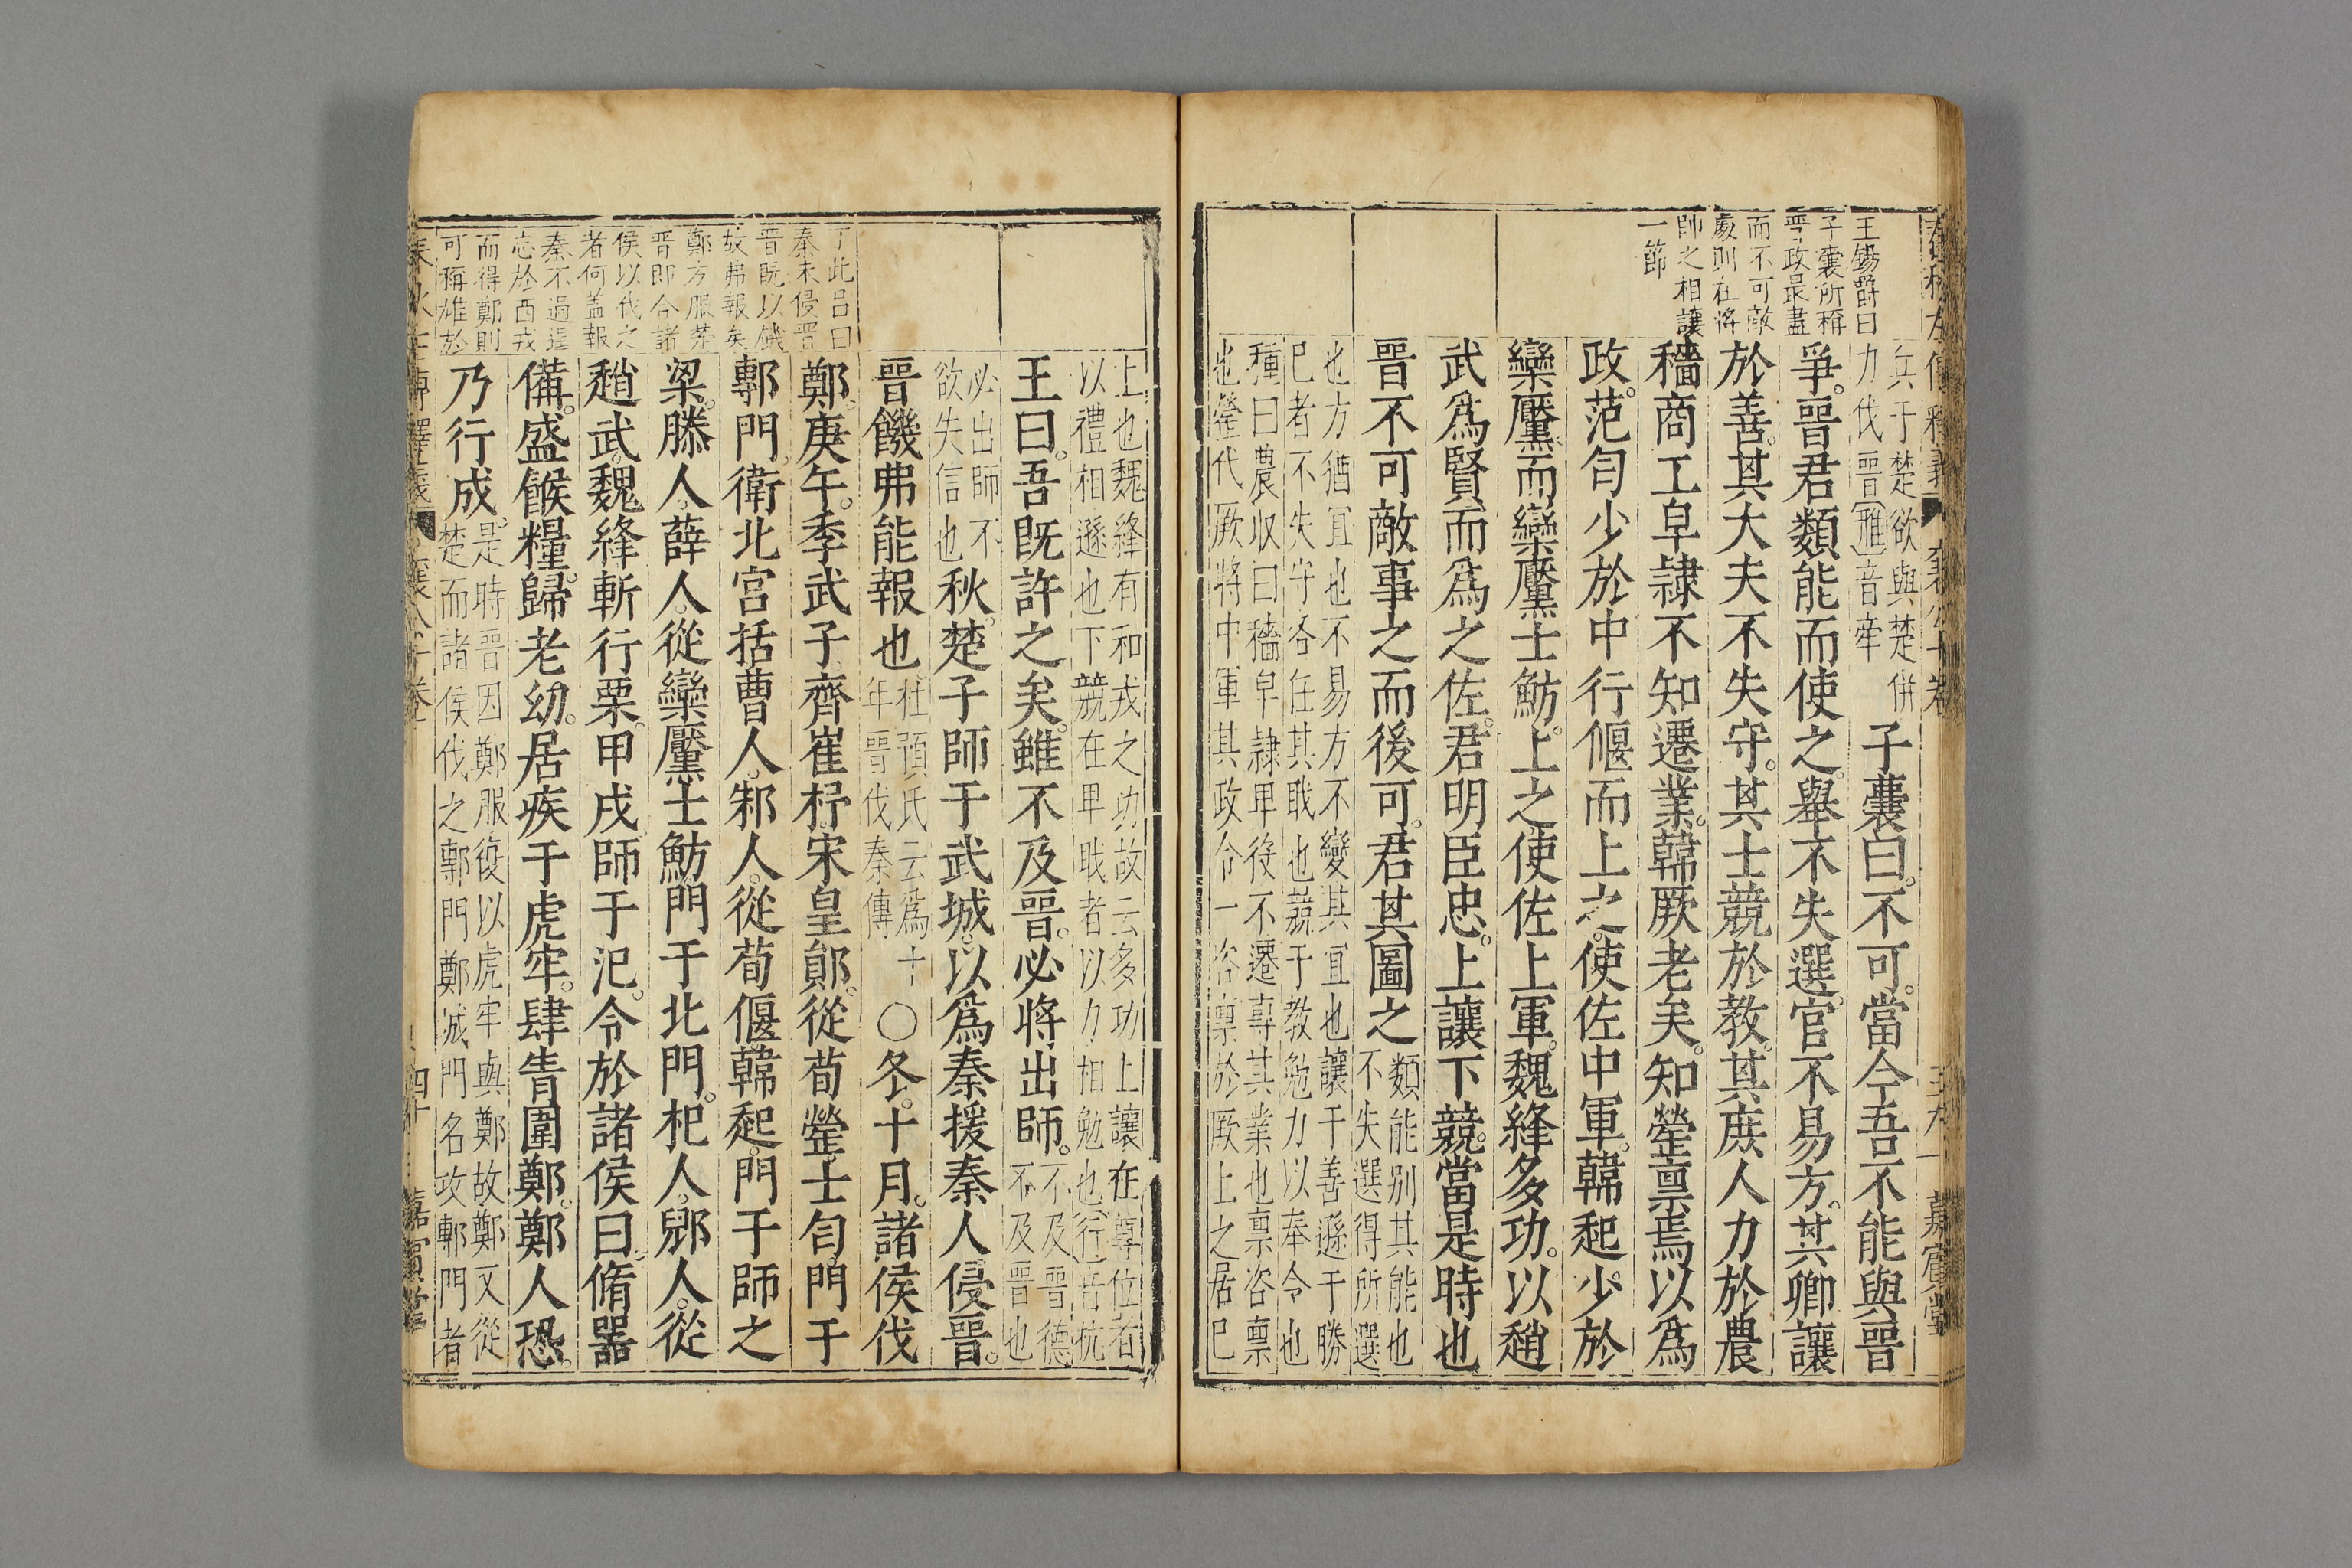 王錫爵曰
子囊所稱
晋政最盡
而不可敵
處則在將
帥之相讓
一節
兵于楚欲與楚併
力伐晋(雃)音牽
子囊曰不可當今吾不能與晋
爭晋君類能而使之舉不失選官不易方其卿讓
於善其大夫不失守其士競於教其庶人力於農
穡商工皁隷不知遷業韓厥老矣知罃禀焉以爲
政范匄少於中行偃而上之使佐中軍韓起少於
欒黶而欒黶士魴上之使佐上軍魏絳多功以趙
武爲賢而爲之佐君明臣忠上讓下競當是時也
晋不可敵事之而後可君其圖之
類能別其能也
不失選得所選
也方猶宜也不易方不變其宜也讓于善遜于勝
已者不失守各任其職也競于教勉力以奉令也
種曰農収曰穡皁隷卑役不遷專其業也禀咨禀
也罃代厥將中軍其政令一咨禀於厥上之居已
上也魏絳有和戎之功故云多功上讓在尊位者
以禮相遜也下競在卑戢者以力相勉也(行)音杭
王曰吾旣許之矣雖不及晋必將出師
不及晋德
不及晋也
必出師不
欲失信也
秋楚子師于武城以爲秦援秦人侵晋
晋饑弗能報也
杜預氏云爲十
年晋伐秦傳
○冬十月諸侯伐
鄭庚午季武子齊崔杼宋皇鄖從荀罃士匄門于
鄟門衛北宮括曹人邾人從荀偃韓起門于師之
梁滕人薛人從欒黶士魴門于北門杞人郳人從
趙武魏絳斬行栗甲戌師于氾令於諸侯曰脩器
備盛餱糧歸老幼居疾于虎牢肆眚圍鄭鄭人恐
乃行成
是時晋因鄭服復以虎牢與鄭故鄭又從
楚而諸侯伐之鄟門鄭城門名攻鄟門者
丁此呂曰
秦未侵晋
晋旣以饑
故弗報矣
鄭方服楚
晋即合諸
侯以伐之
者何盖報
秦不過逞
志於西戎
而得鄭則
可稱雄於
四十
嘉賔堂